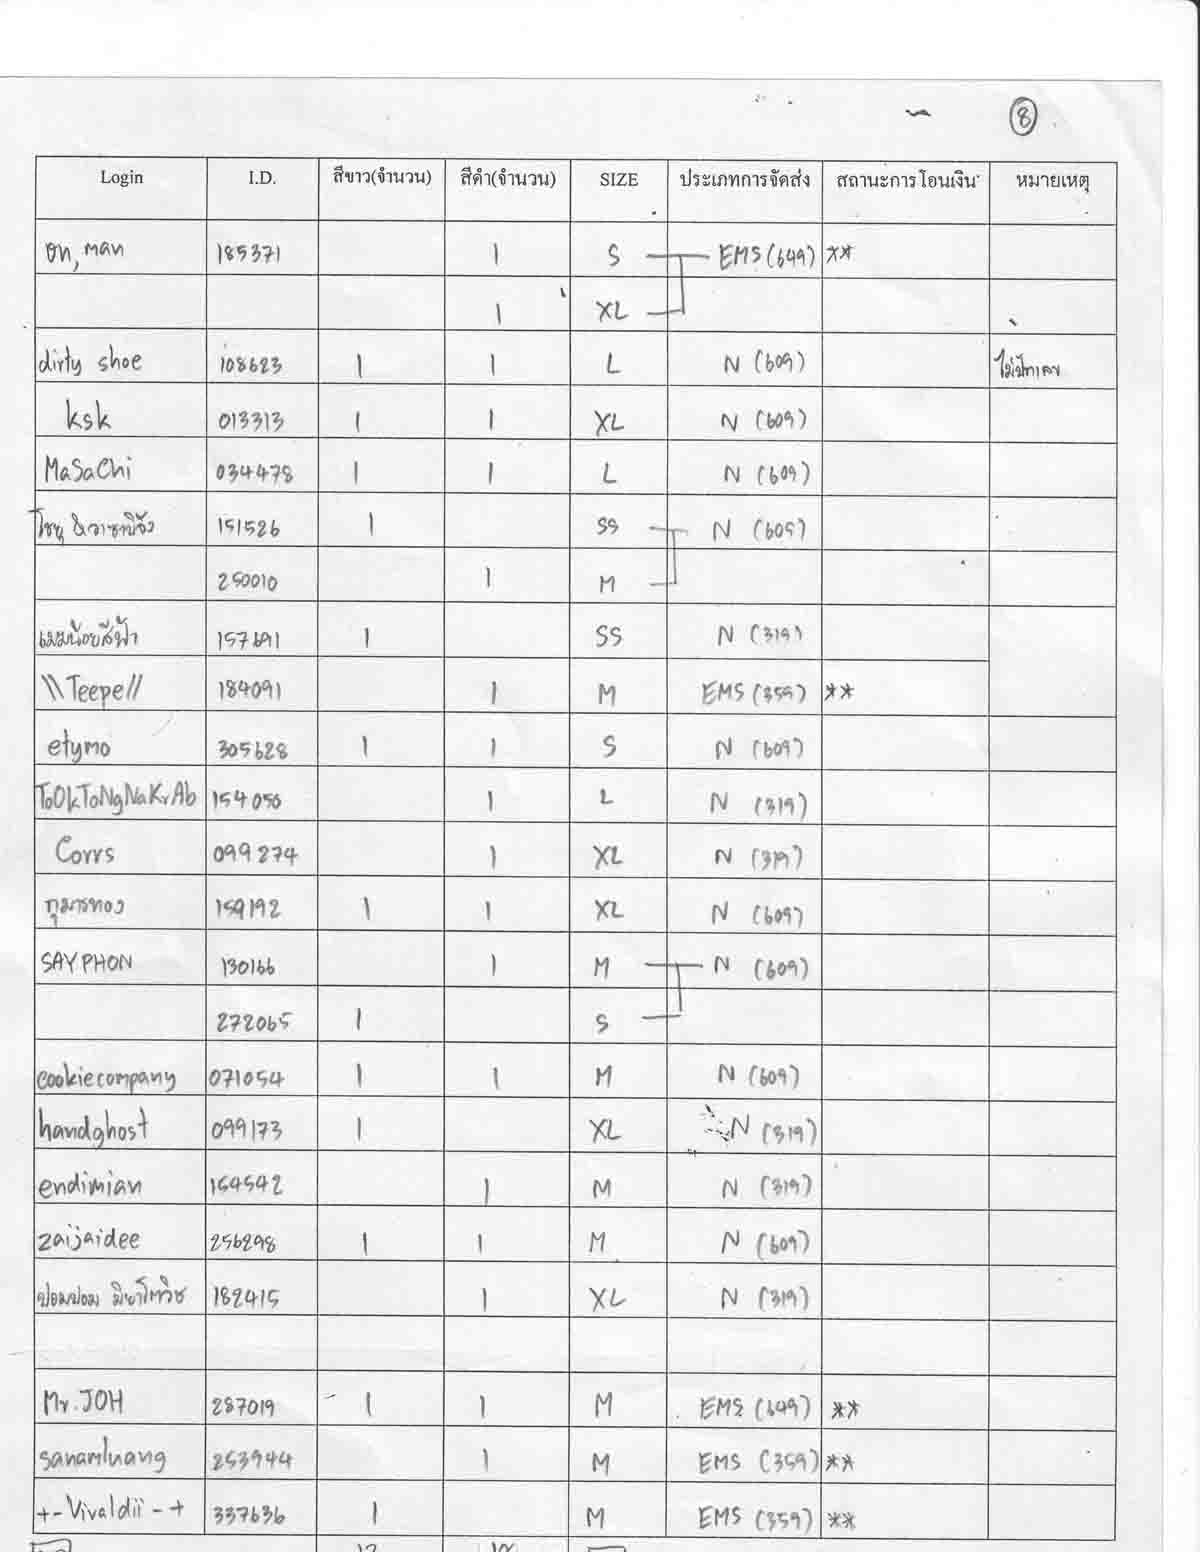 8
Login I.D. สีขาว(จำนวน) สีดำ(จำนวน) SIZE ประเภทการจัดส่ง สถานะการโอนเงิน หมายเหตุ
on, man 185371 1 S EMS (649) **
1 XL
dirty shoe 108623 1 1 L N (609)
ksk 013313 1 1 XL N (609)
MaSaChi 034478 1 1 L N (609)
151526 1 SS N (609)
250010 1 M
แมมน้อยสีฟ้า 157691 1 SS N (319)
\\Teepe// 184091 1 M EMS (359) **
etymo 305628 1 1 S N (609)
ToOkToNgNaKrAb 154050 1 L N (319)
Corrs 099274 1 XL N (319)
กุมารทอง 159192 1 1 XL N (609)
SAYPHON 130166 1 M N (609)
272065 1 S
cookiecompany 071054 1 1 M N (609)
handghost 099173 1 XL N (319)
endimian 154542 1 M N (319)
zaijaidee 256298 1 1 M N (609)
182415 1 XL N (319)
Mr.JOH 287019 1 1 M EMS (649) **
sanamluang 253944 1 M EMS (359) **
+-Vivaldii-+ 337636 1 M EMS (359) **